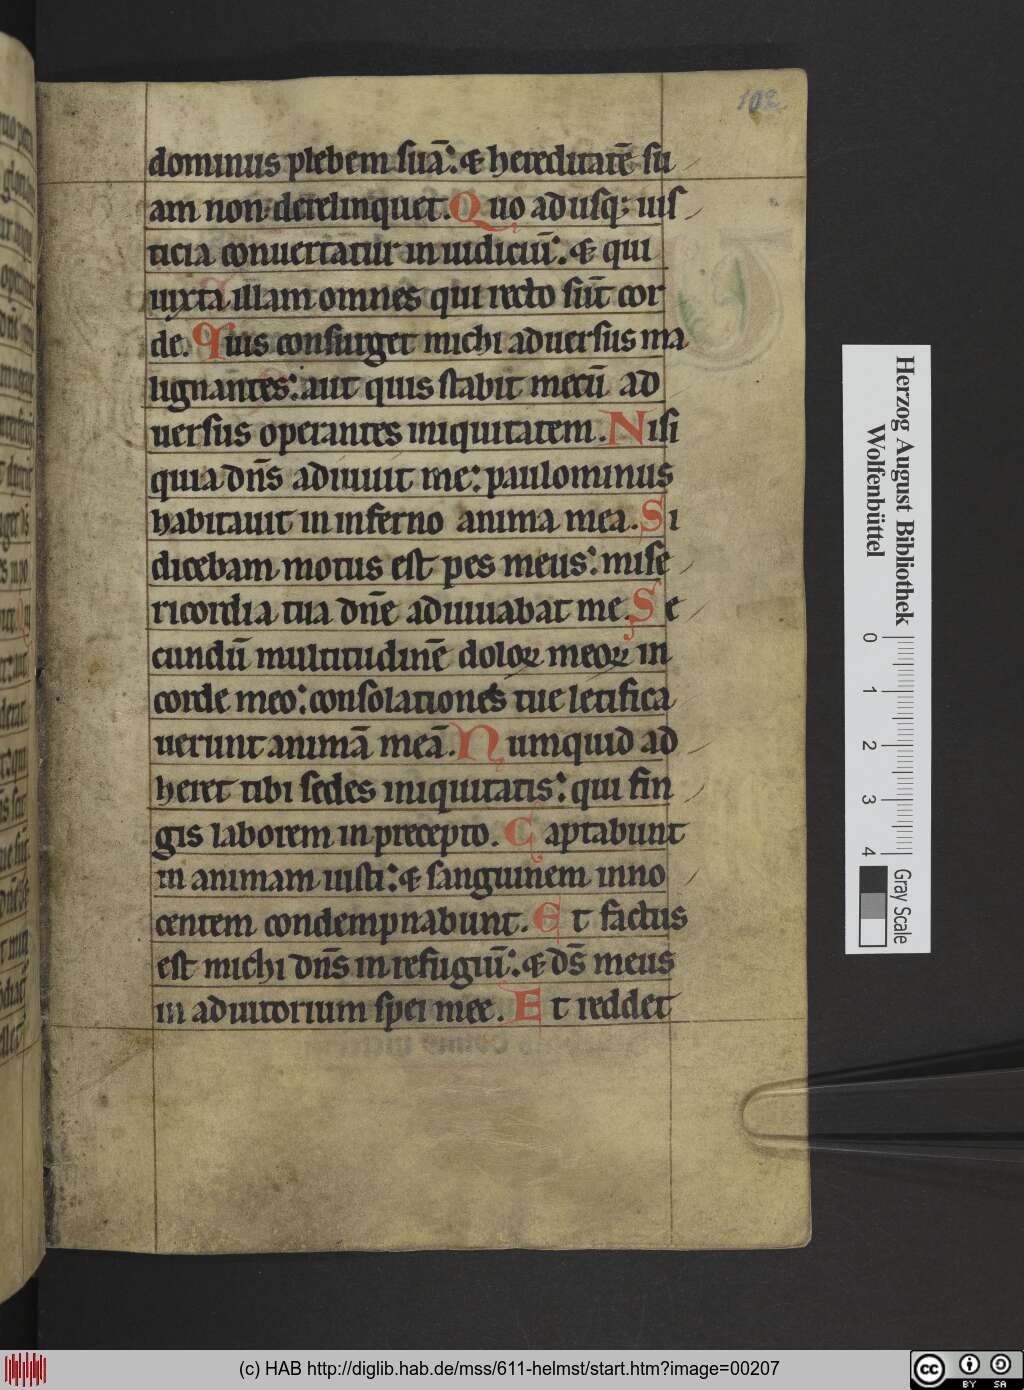 102
dominus plebem suā: & hereditatē su
am non derelinquet. Quo adusq; ius
ticia conuertatur in iudiciū: & qui
iuxta illam omnes qui recto sūt cor
de. Quis consurget michi aduersus ma
lignantes: aut quis stabit mecū ad
uersus operantes iniquitatem. Nisi
quia dn̄s adiuuit me: paulominus
habitauit in inferno anima mea. Si
dicebam motus est pes meus: mise
ricordia tua dn̄e adiuuabat me. Se
cundū multitudinē doloꝝ meoꝝ in
corde meo: consolationes tue letifica
uerunt animā meā. Numquid ad
heret tibi sedes iniquitatis: qui fin
gis laborem in precepto. Captabunt
in animam iusti: & sanguinem inno
centem condempnabunt. Et factus
est michi dn̄s in refugiū: & ds̄ meus
in adiutorium spei mee. Et reddet
Herzog August Bibliothek
Wolfenbüttel
0 1 2 3 4
Gray Scale
(c) HAB http://diglib.hab.de/mss/611-helmst/start.htm?image=00207
cc BY SA